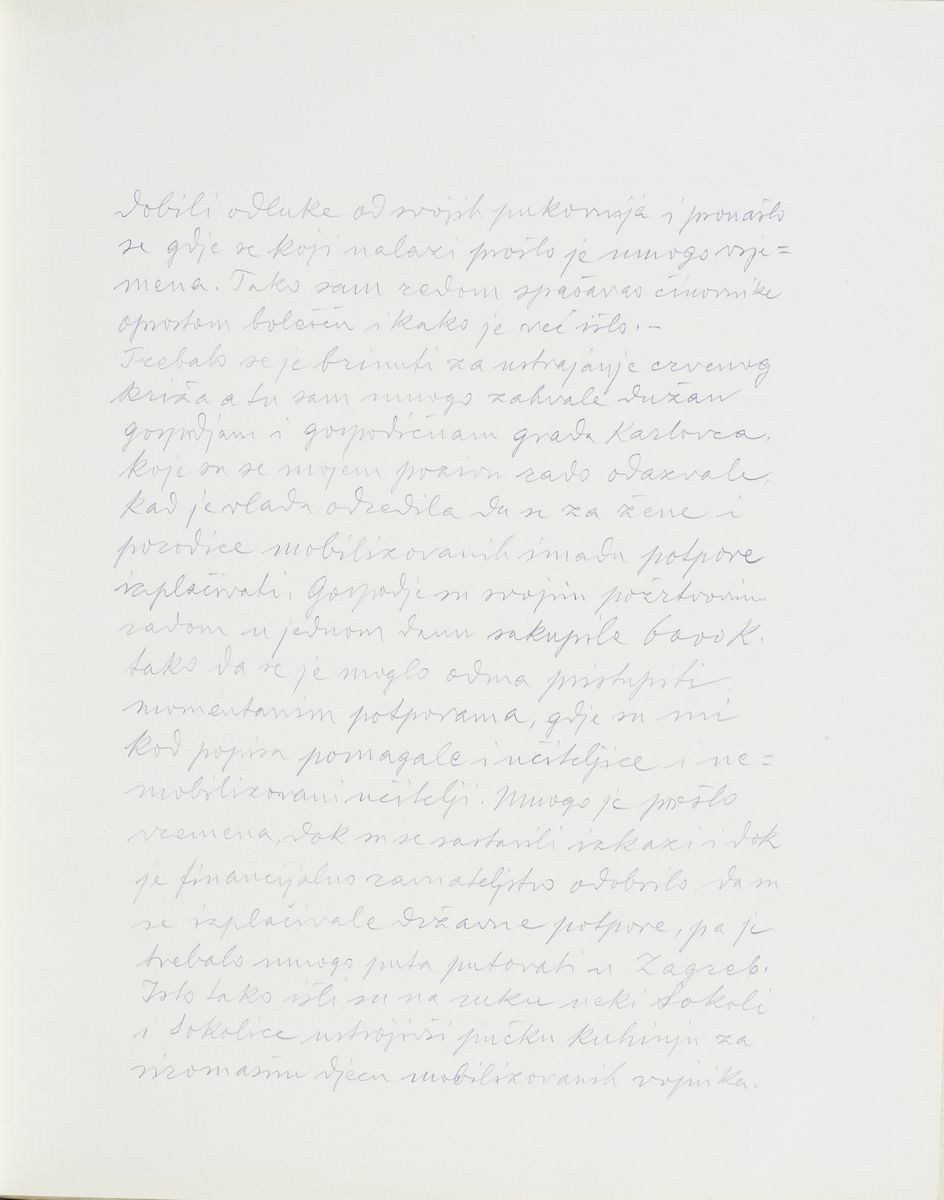 dobili odluke od svojih pukovnija i pronašlo
se gdje se koji nalazi prošlo je mnogo vrje=
mena. Tako sam redom spašavao činovnike
oprostom bolešću i kako je već išlo. –
Trebalo se je brinuti za ustrajanje crvenog
križa a tu sam mnogo zahvale dužan
gospodjam i gospodičnam grada Karlovca,
koje su se mojem pozivu rado odazvale,
kad je vlada odredila da se za žene i
porodice mobilizovanih imadu potpore
izplaćivati. Gospodje su svojim požrtvovnim
radom u jednom danu sakupile 6000 K.
tako da se je moglo odma pristupiti
momentanim potporama, gdje su mi
kod popisa pomagale i učiteljice i ne=
mobilizovani učitelji. Mnogo je prošlo
vremena, dok su se sastavili izkazi i dok
je financijalno ravnateljstvo odobrilo, da su
se izplaćivale državne potpore, pa je
trebalo mnogo puta putovati u Zagreb.
Isto tako išli su na ruku neki Sokoli
i Sokolice ustrojivši pučku kuhinju za
siromašnu djecu mobilizovanih vojnika.